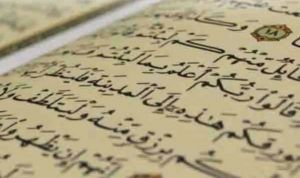 ١٨ وَكَ
قَائِلٌ مِّنْهُمْ كَمْ
قَالُوا۟ رَبُّكُمْ أَعْلَمُ بِمَا لَبِثْتُمْ
بِوَرِقِكُمْ هَٰذِهِۦٓ إِلَى ٱلْمَدِينَةِ فَلْيَنظُرْ
كُم بِرِزْقٍ مِّنْهُ وَلْيَتَلَطَّفْ وَلَا
إِنَّهُمْ إِن يَظْهَرُوا۟